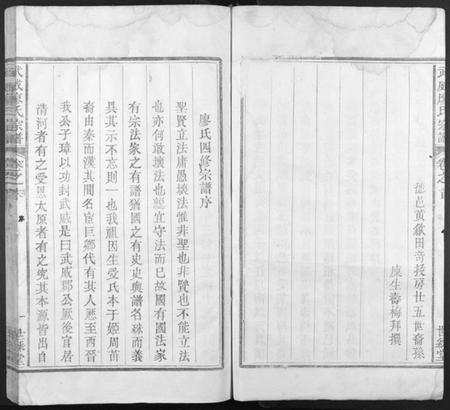 武威廖氏宗譜
卷之首
德邑黃歙田奇技房廿五世裔孫
庠生壽梅拜撰
世綵堂
廖氏四修宗譜序
聖賢立法庸愚壞法惟非聖也非賢也不能立法
也亦何敢壞法也惡宜守法而已故國有國法家
有宗法家之有譜猶國之有史史與譜名殊而義
具其示不忘則一也我祖因生受氏本于姬周苗
裔由秦而漢其間名宦巨鄉代有其人歷至西晉
我公子璋以功封武威是曰武威郡公厥後官居
清河者有之受恩太原者有之究其本源皆出自
武威廖氏宗譜
卷之首
序
一
世綵堂